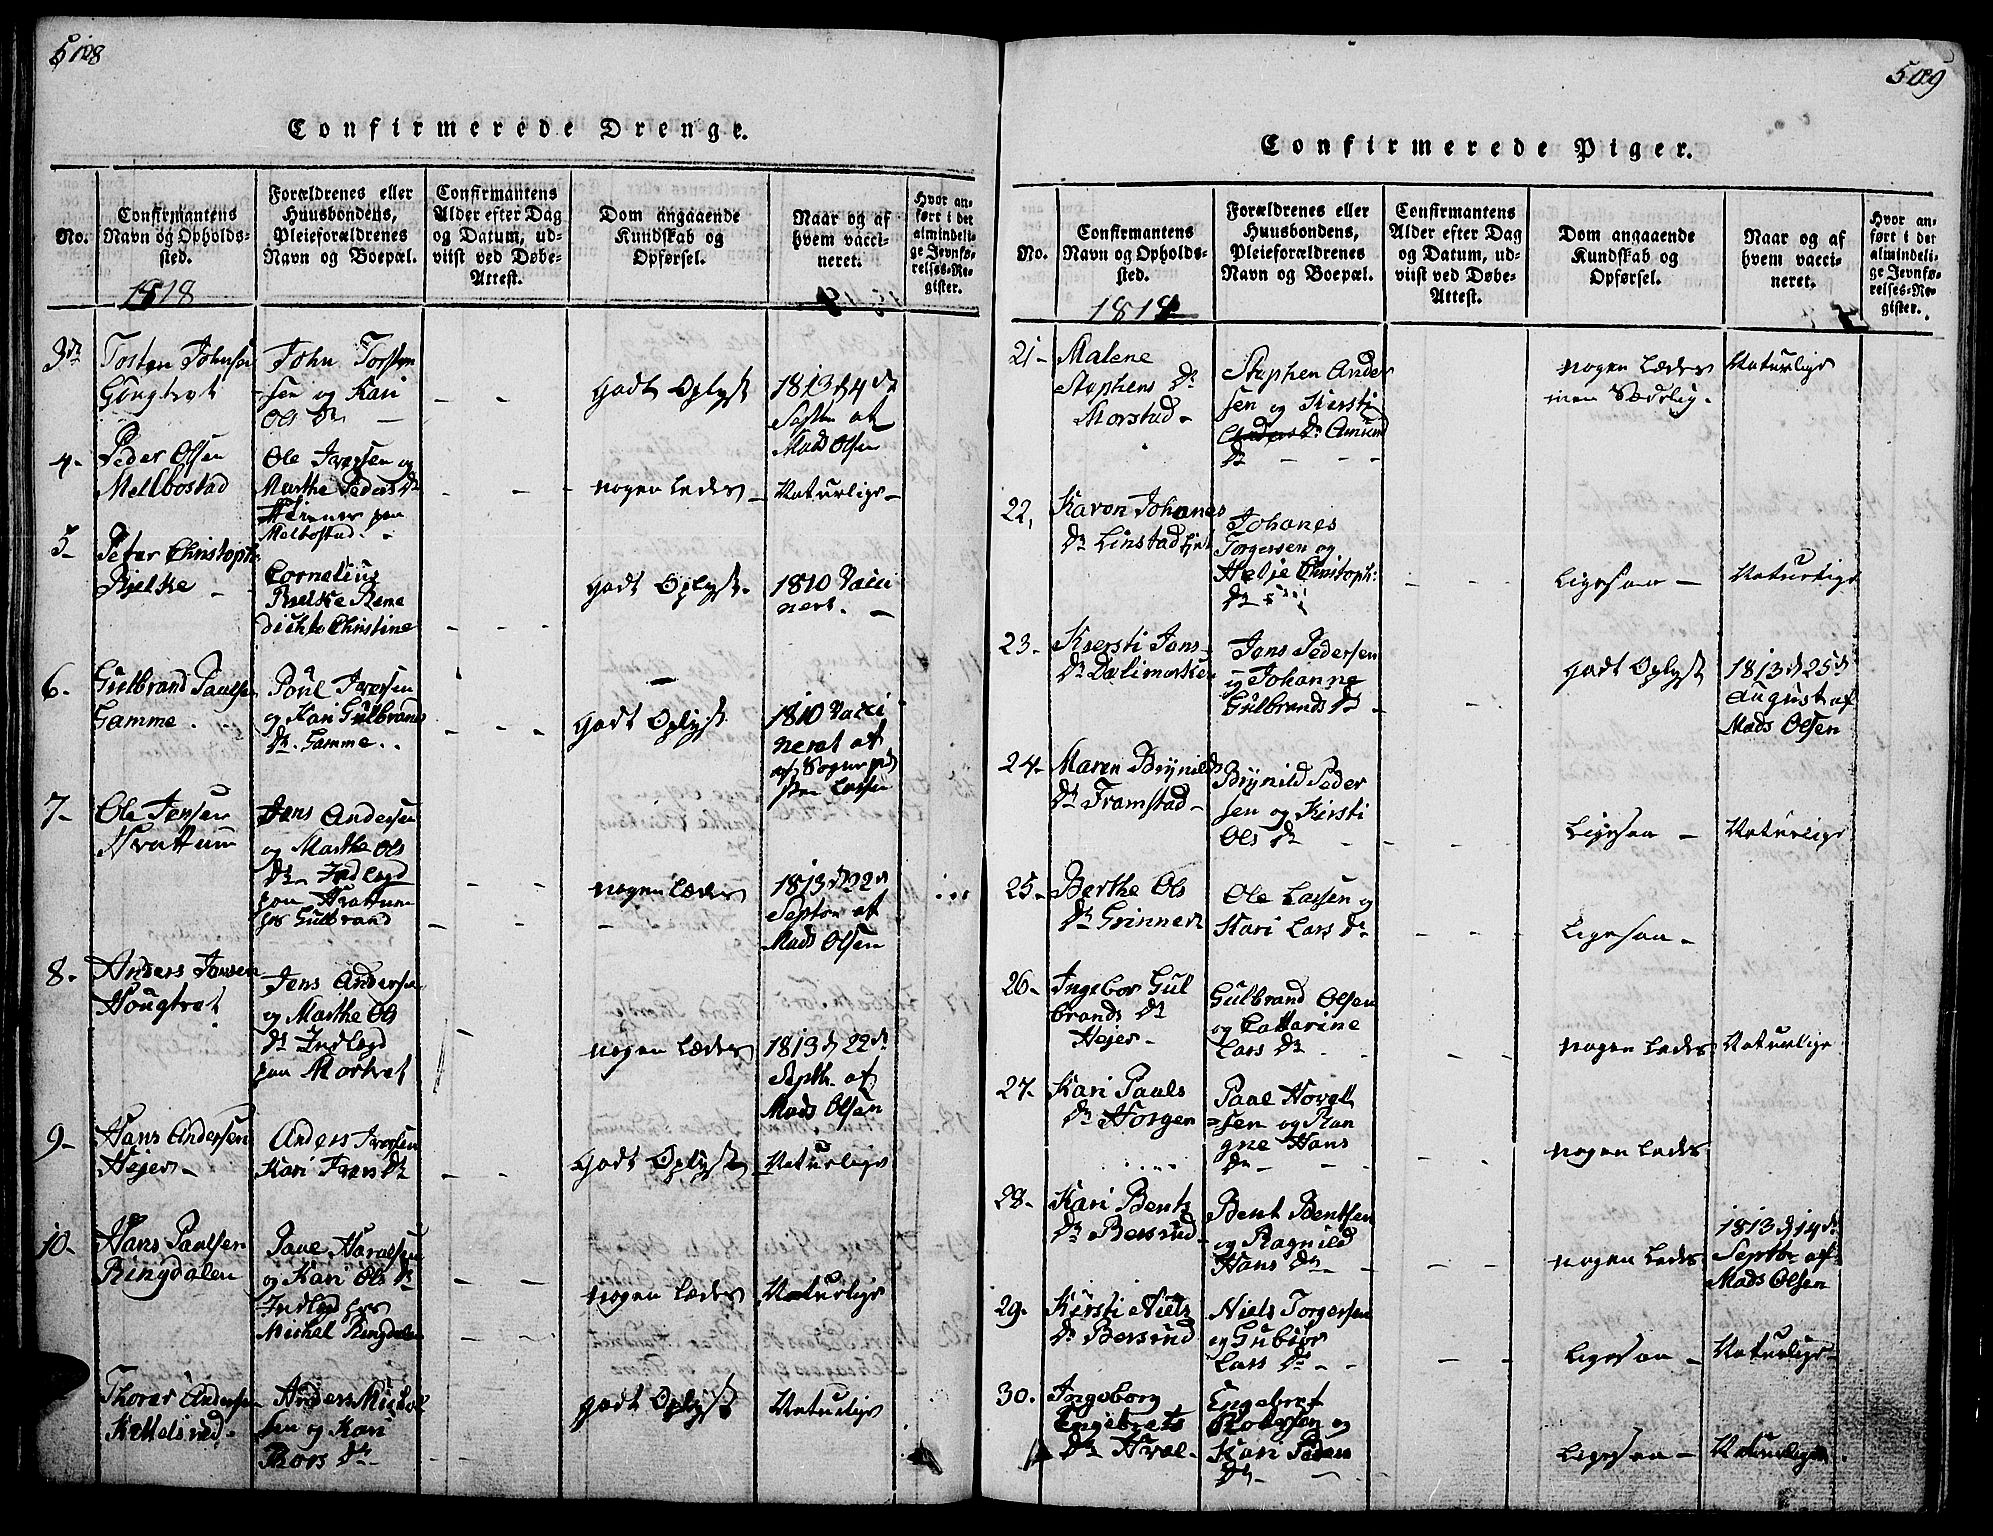 5108
Confirmerede Drenge.
No.
Confirmantens
Navn og Opholds-
sted.
Forældrenes eller
Huusbondens,
Pleieforældrenes
Navn og Boepæl.
Confirmantens
Alder efter Dag
og Datum, ud-
viist ved Døbe-
Attest.
Dom angaaende
Kundskab og
Opførsel.
Naar og af
hvem vacci-
neret.
Hvor an-
ført i det
almindeli-
ge Jevnfø-
relses-Re-
gister.
1818
Tosten Johnsen
John Torsten
sen og Kari
Ols Dr
godt Oplyst
1813 d 4de
Septr af
Mads Olsen
4-
Peder Olsen
Mellbostad
Ole Iversen og
Marthe Peders Dr
Melbostad
nogen leder
Naturlige
5-
Peter Christoph:
Bielke
Cornelius
Bielke Bene
dichte Christine
godt Oplyst.
1810 Vacci
nert.
6.
Gulbrand Paulsen
Gamme.
Poul Iversen
og Kari Gulbrands
Dr. Gamme..
godt Oplyst
1810 Vacci
nerat af
7-
Ole Jensen
Jens Andersen
og Marthe Ols
Dr Indlagd
hos Gulbrand
nogen læder
1813 d 22de
Septbr af
Mads Olsen
8-
Anders Jensen
Jens Andersen
og Marthe Ols
Dr Indlagd
nogen læder
1813 d 22de
Septbr. af
Mads Olsen
9-
Hans Andersen
Hejer
Anders Iversen
Kari Ivers Dr
godt Oplyst
Naturlige
10-
Hans Paulsen
Ringdalen
og Kari Ols Dr
Indlagd hos
Michel Ringdalen
nogen læder
Naturlige
Thorer Andersen
Anders Michel
sen og Kari
Thors Dr
godt Oplyst
Naturlige
509
Confirmerede Piger.
No.
Confirmantens
Navn og Opholds-
sted.
Forældrenes eller
Huusbondens,
Pleieforældrenes
Navn og Boepæl.
Confirmantens
Alder efter Dag
og Datum, ud-
viist ved Døbe-
Attest.
Dom angaaende
Kundskab og
Opførsel.
Naar og af
hvem vacci-
neret.
Hvor an-
ført i det
almindeli-
ge Jevnfø-
relses-Re-
gister.
21-
Malene
Stephens Dr
Morstad
Stephen Ander
sen og Kiersti
Anders Dr Amund
Dr
nogen læder
men Sædelig.
Naturlige
22,
Karon Johanes
Dr Linstad
Johanes
Torgersen og
Helje Christoph:
Dr
Ligesaa
Naturlige
23.
Kiersti Jens
Jens Pedersen
og Johanne
Gulbrands Dr
godt Oplyst
1813 d 25de
August af
Mads Olsen
24-
Maren Brynilds
Dr Framstad
Brynild Peder
sen og Kirsti
Ols Dr
Ligesaa
Naturlige
25-
Berthe Ols
Dr Grinner
Ole Larsen og
Kari Lars Dr
Ligesaa
26-
Ingebor Gul
brands Dr
Hejer
Gulbrand Olsen
og Cattarine
Lars Dr
nogen leder
Naturlige
27-
Kari Pauls
Dr Horgen
Paul Hovel
sen og Ran
gne Hans
Dr
nogen leder
28-
Kari Bents
Dr Bersrud
Bent Bentsen
og Ragnild
Hans Dr
nogen leder
1813 d 14de
Septbr af
Mads Olsen
29.
Kirsti Niels
Dr Bersrud
Niels Torgersen
og Gubiør
Lars Dr
Ligesaa
Naturlige
30.
Ingeborg
Engebrets
Dr Hval
Engebret
Pedersen og
Kari Peders
Dr
Ligesaa
Naturlige